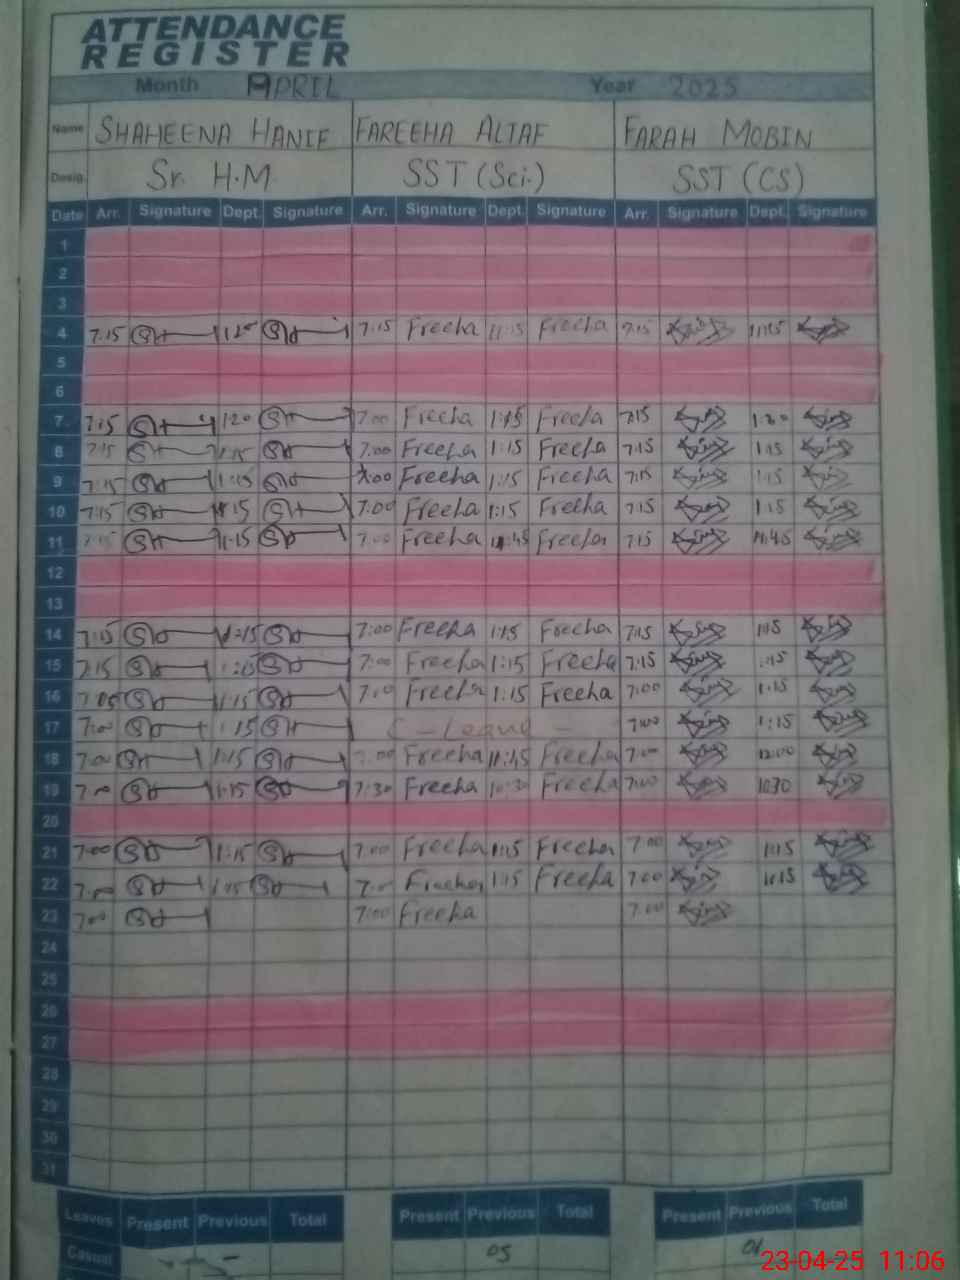 ATTENDANCE
REGISTER
Month APRIL Year 2025
Name SHAHEENA HANIF FAREEHA ALTAF FARAH MOBIN
Desig. Sr. H.M. SST (Sci.) SST (CS)
Date Arr. Signature Dept. Signature Arr. Signature Dept. Signature Arr. Signature Dept. Signature
1
2
3
4 7:15 7:15 Freeha 11:15 Freeha 7:15
5
6
7 7:15 1:20 7:00 Freeha 1:15 Freeha 7:15
8 7:15 1:15 7:00 Freeha 1:15 Freeha 7:15 1:15
9 7:15 1:15 7:00 Freeha 1:15 Freeha 7:15 1:15
10 7:15 7:00 Freeha 1:15 Freeha 7:15 1:15
11 7:15 7:00 Freeha Freeha 7:15 11:45
12
13
14 7:15 7:00 Freeha 1:15 Freeha 7:15 1:15
15 7:15 7:00 Freeha 1:15 Freeha 7:15 1:15
16 1:15 Freeha 1:15 Freeha 7:00 1:15
17 7:00 1:15 C - Leave - 7:00 1:15
18 7:00 1:15 7:00 Freeha 11:45 Freeha 7:00 12:00
19 7:00 1:15 7:30 Freeha 10:30 Freeha 7:00 10:30
20
21 7:00 1:15 7:00 Freeha 1:15 Freeha 7:00 1:15
22 7:00 1:15 7:00 Freeha 1:15 Freeha 7:00 1:15
23 7:00 7:00 Freeha 7:00
24
25
26
27
28
29
30
31
Leaves Present Previous Total Present Previous Total Present Previous Total
Casual - 05 01
23-04-25 11:06